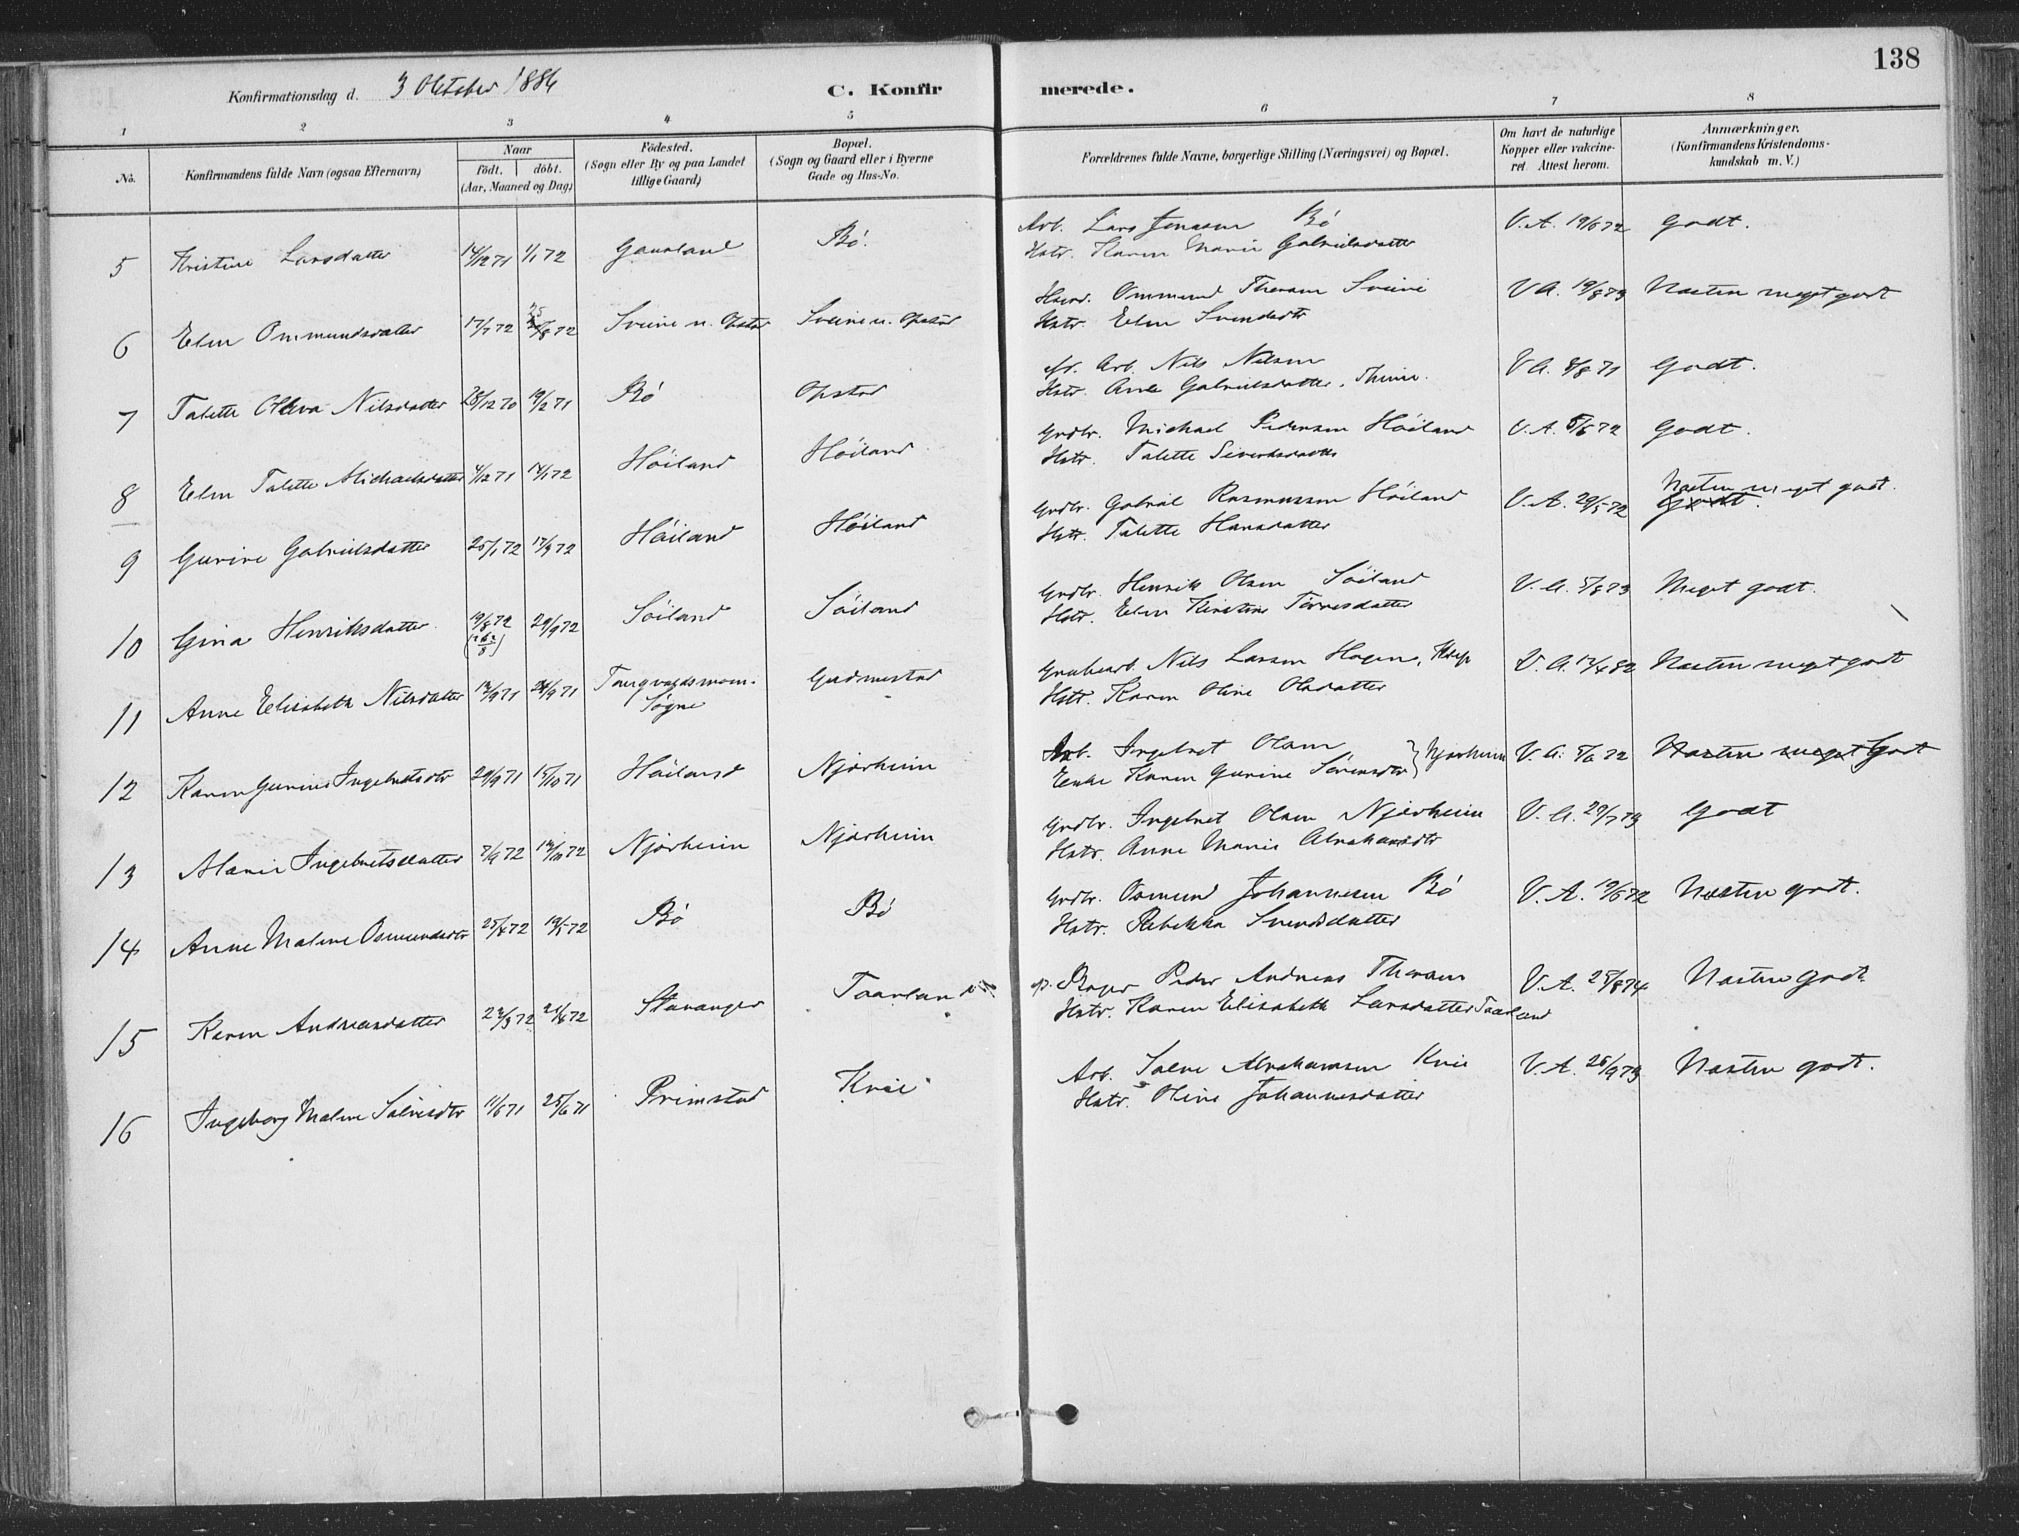 138
Konfirmationsdag d. 3 Oktober 1886
C. Konfirmerede.
1 2 3 4 5 6 7 8
No.
Konfirmandens fulde Navn (ogsaa Efternavn)
Naar
födt. döbt.
(Aar, Maaned og Dag)
Födested.
(Sogn eller By og paa Landet
tillige Gaard)
Bopæl.
(Sogn og Gaard eller i Byerne
Gade og Hus-No.
Forældrenes fulde Navne, borgerlige Stilling (Næringsvei) og Bopæl.
Om havt de naturlige
Kopper eller vakcine-
ret. Attest herom.
Anmærkninger.
(Konfirmandens Kristendoms-
kundskab m. V.)
5 Kristine Larsdatter 14/12 71 1/1 72 Gausland Bö. Arb. Lars Jonasen Bö V. A. 19/6 72 Godt.
Hstr. Karen Marie Gabrielsdatter
6 Elen Ommundsdatter 17/7 72 25/8 72 Sveine u. Opstad Sveine u. Opstad Ommund Sveine V A. 19/8 73 Næsten meget godt
Hstr. Elen Svendsdtr
7 Talette Oleva Nilsdatter 28/12 70 19/2 71 Bö Opstad Arb. Nils Nilsen V A. 8/8 71 Godt.
Hstr. Ane Gabrielsdatter, Thime.
8 Elen Talette Michaelsdatter 4/12 71 14/1 72 Höiland Höiland Grdbr. Michael Pedersen Höiland V. A. 5/6 72 Godt.
Hstr. Talette Sivertsdatter
9 Gurine Gabrielsdatter 25/1 72 17/3 72 Höiland Höiland Grdbr. Gabriel Rasmussen Höiland V. A. 29/5 72 Næsten meget godt.
Hstr. Talette Hansdatter Godt.
10 Gina Henriksdatter 19/8 72 29/9 72 Söiland Söiland Grdbr. Henrik Olsen Söiland V. A. 5/8 73 Meget godt.
Hstr. Elen Kirstine Törresdatter
11 Anne Elisabeth Nilsdatter 12/9 71 24/9 71 Gudmestad Nils Larsen Hagen, Klep V. A. 12/4 82 Næsten meget godt
Sogne Hstr. Karen Oline Olsdatter
12 Karen Gurine Ingebretsdtr 29/9 71 15/10 71 Höiland Njærheim Arb. Ingebret Olsen } Njærheim V. A. 5/6 72 Næsten meget Godt
Enke Karen Gurine Sörensdtr
13 Marie Ingebretsdatter 7/9 72 14/10 72 Njærheim Njærheim Grdbr. Ingebret Olsen Njærheim V. A. 29/7 73 Godt
Hstr. Anne Marie Abrahamsdtr
14 Anne Malene Osmundsdtr 25/4 72 19/5 72 Bö Bö Grdbr. Osmund Johannesen Bö V. A. 19/6 72 Næsten godt.
Hstr. Rebekka Svendsdatter
15 Karen Andreasdatter 22/3 72 21/4 72 Stavanger Taarland Peder Andreas V. A. 25/8 74 Næsten godt
Hstr. Karen Elisabeth Larsdatter Taarland
16 Ingeborg Malene Salvesdtr 11/6 71 25/6 71 Primstad Kvie Arb. Salve Abrahamsen Kvie V. A. 26/9 73 Næsten godt.
Hstr. Oline Johannesdatter